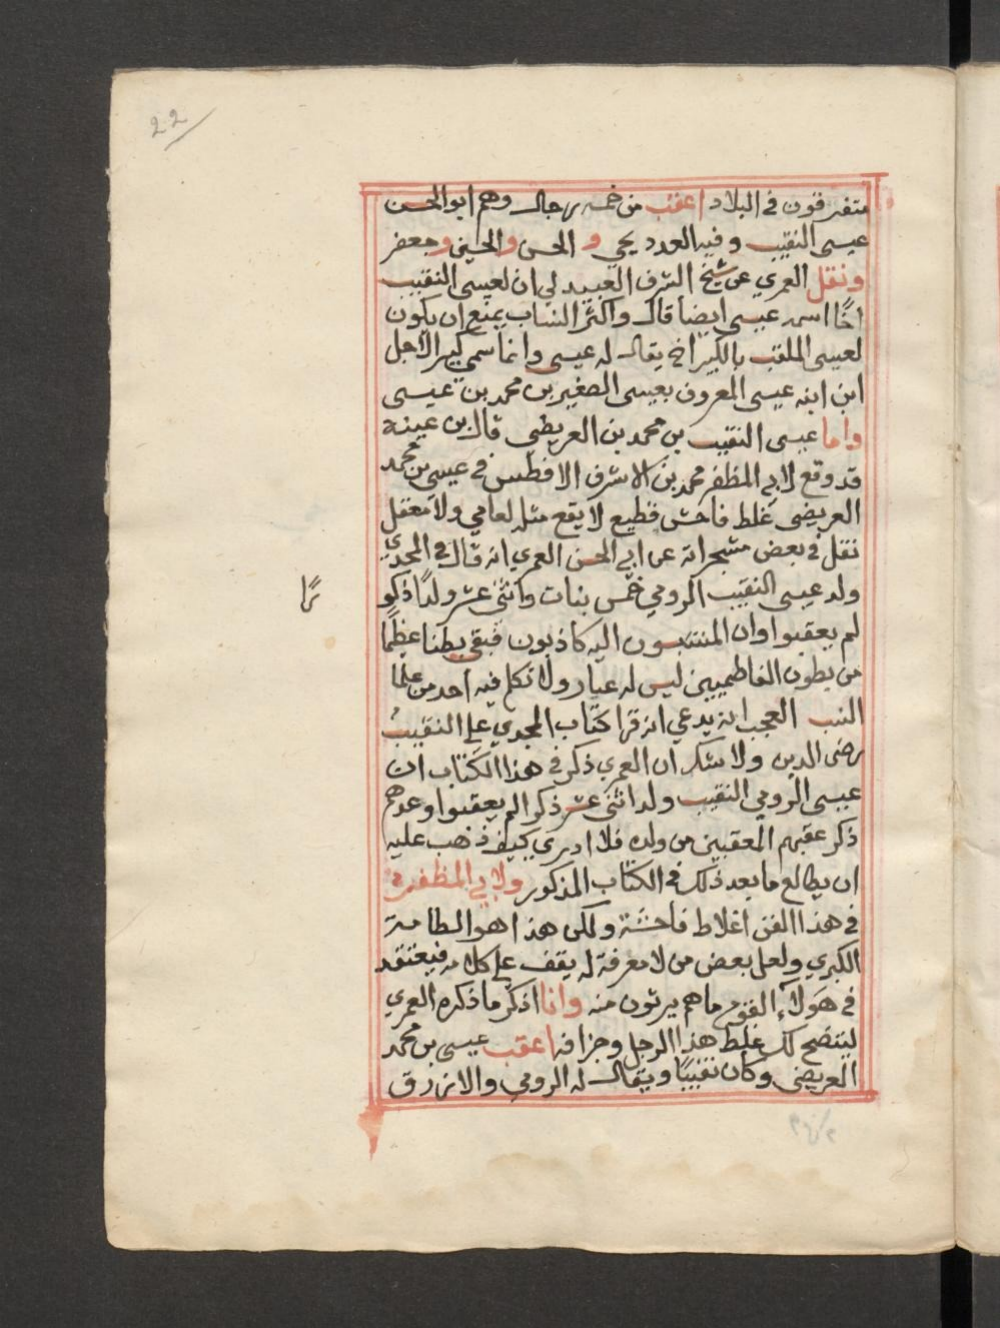 22
متفرقون في البلاد اعقب من خمسه رجال وهم ابوالحسن
عيسى النقيب وفيه العدد يحيي و الحسن والحسين وجعفر
ونقل العمري عن شيخ الشرف العبيدلي ان لعيسى النقيب
اخًا اسمه عيسى ايضا قال واكثر النساب يمنع ان يكون
لعيسى الملقب بالكبير اخ يقال له عيسى وانما سمي كبيرالاجل
ابن ابنه عيسى المعروف بعيسى الصغير بن محمد بن عيسى
واما عيسى النقيب بن محمد بن العريضي قال بن عينه
قد وقع لابي المظفر محمد بن الاشرف الافطس في عيسى بن محمد
العريضي غلط فاحش فظيع لا يقع مثله لعامي ولا مغفل
نقل في بعض مشجراته عن ابي الحسن العمري انه قال في المجدي
ولد عيسى النقيب الرومي خمس بنات واثنى عشر ولدًا ذكو
لم يعقبوا وان المنتسبون اليه كاذبون فبقي بطنا عظيمًا
من بطون الفاطميين ليس له عيار ولا تكلم فيه احد من علما
النسب العجب انه يدعي انه قرا كتاب المجدي على النقيب
رضى الدين ولا شك ان العمري ذكر في هذا الكتاب ان
عيسى الرومي النقيب ولد اثنى عشر ذكرا لم يعقبوا وعدهم
ذكر عقبهم المعقبين من ولده فلا ادري كيف ذهب عليه
ان يطالع ما بعد ذلك في الكتاب المذكور ولابي المظفر
في هذا الفن اغلاط فاحشة ولكن هذا هو الطامة
الكبري ولعل بعض من لا معرفة له يقف على كلامه فيعتقد
في هولآء القوم ما هم يرثون منه وانا اذكر ما ذكره العمري
ليتضح لك غلط هذا الرجل وجزافه اعقب عيسى بن محمد
العريضي وكان نقيبًا ويقال له الرومي والازرق